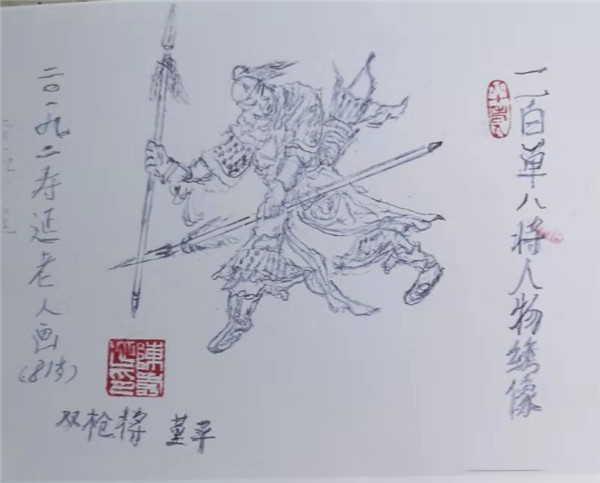 一百单八将人物绣像
二〇一九.2寿延老人画
(81岁)
双枪将 董平